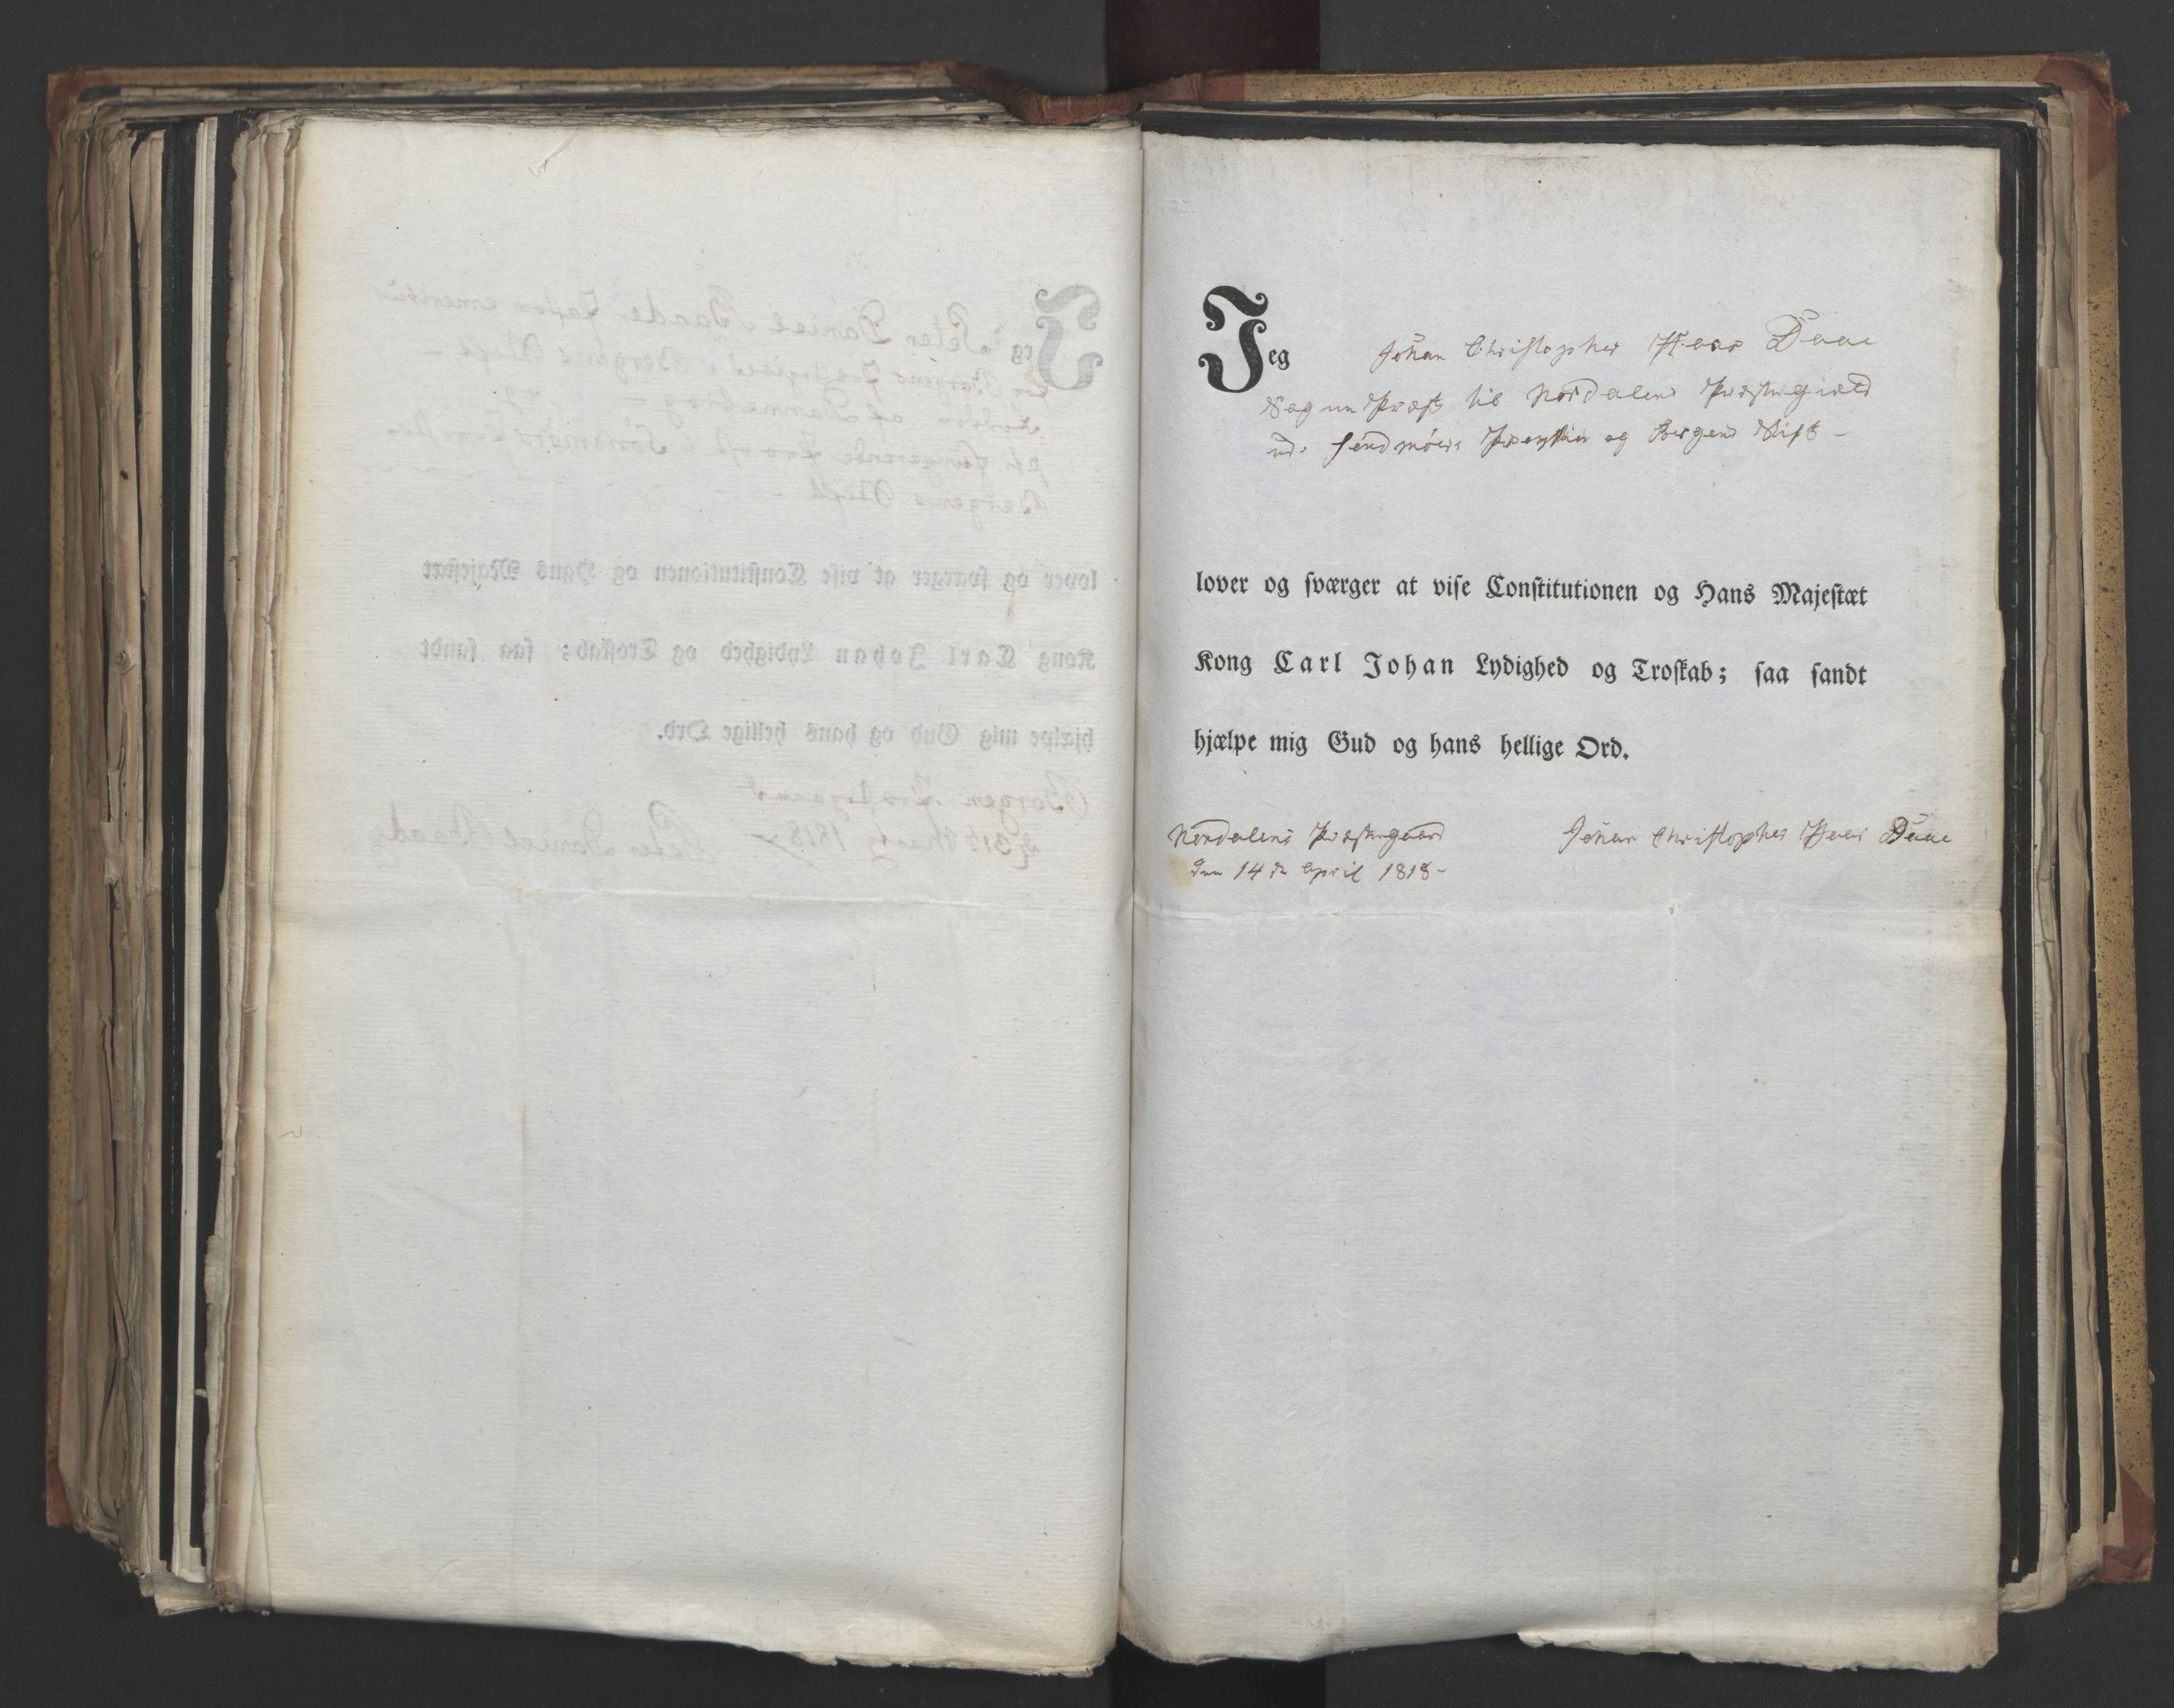 Jeg Johan Christopher Haar Daae
Sogne Præst til Nordalens Præstegield
udi Søndmörs Provstie og Bergens Stift -
lover og sværger at vise Constitutionen og Hans Majestæt
Kong Carl Johan Lydighed og Troskab; saa sandt
hjælpe mig Gud og hans hellige Ord.
Nordalens Præstegaard
den 14de April 1818-
Johan Christopher Haar Daae